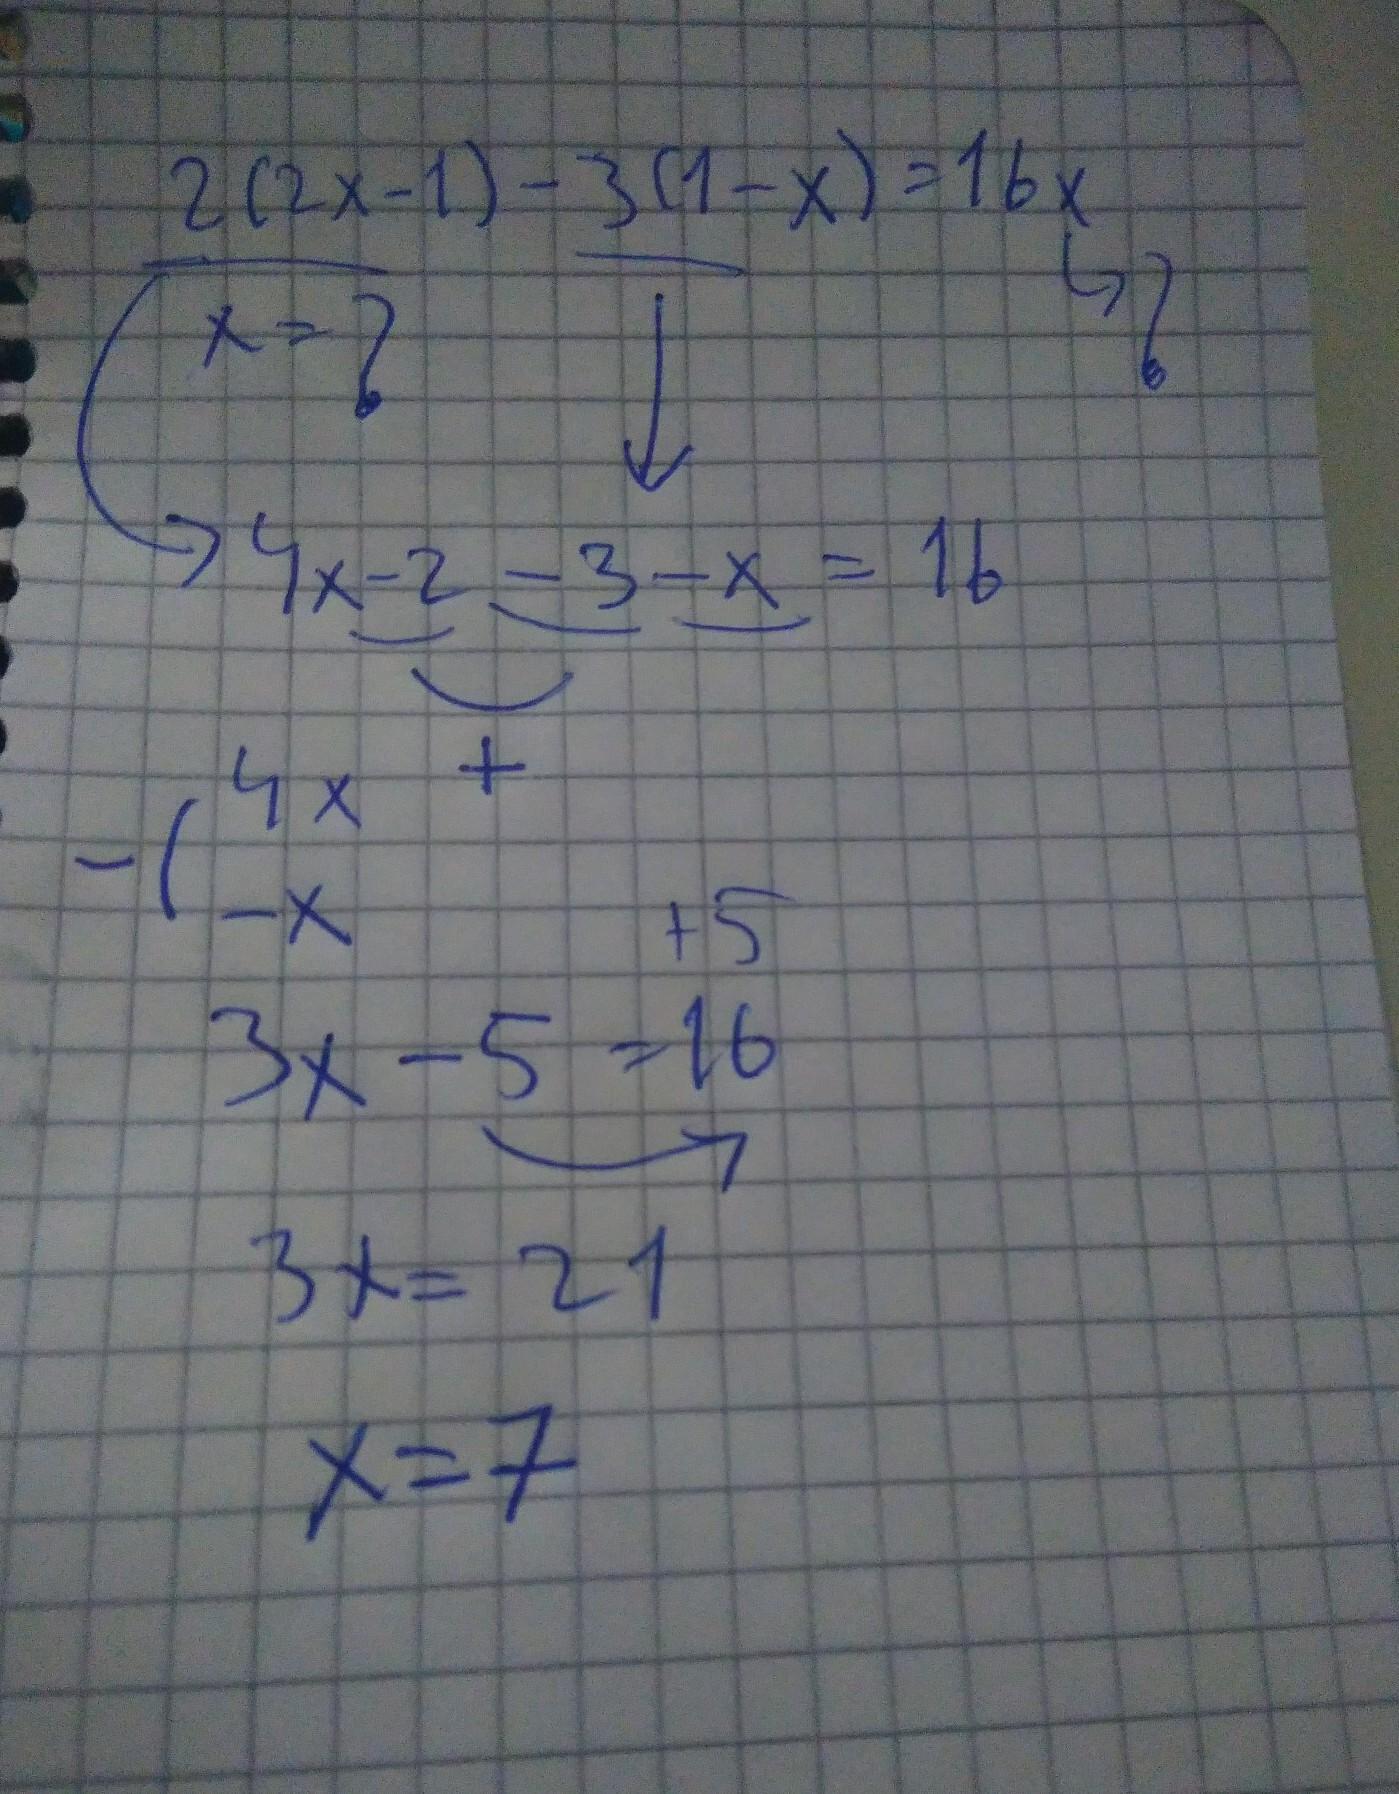 2(2x-1)-3(1-x)=16x
?
x=?
4x-2-3-x=16
+
4x
-
-x
+5
3x-5=16
3x=21
x=7